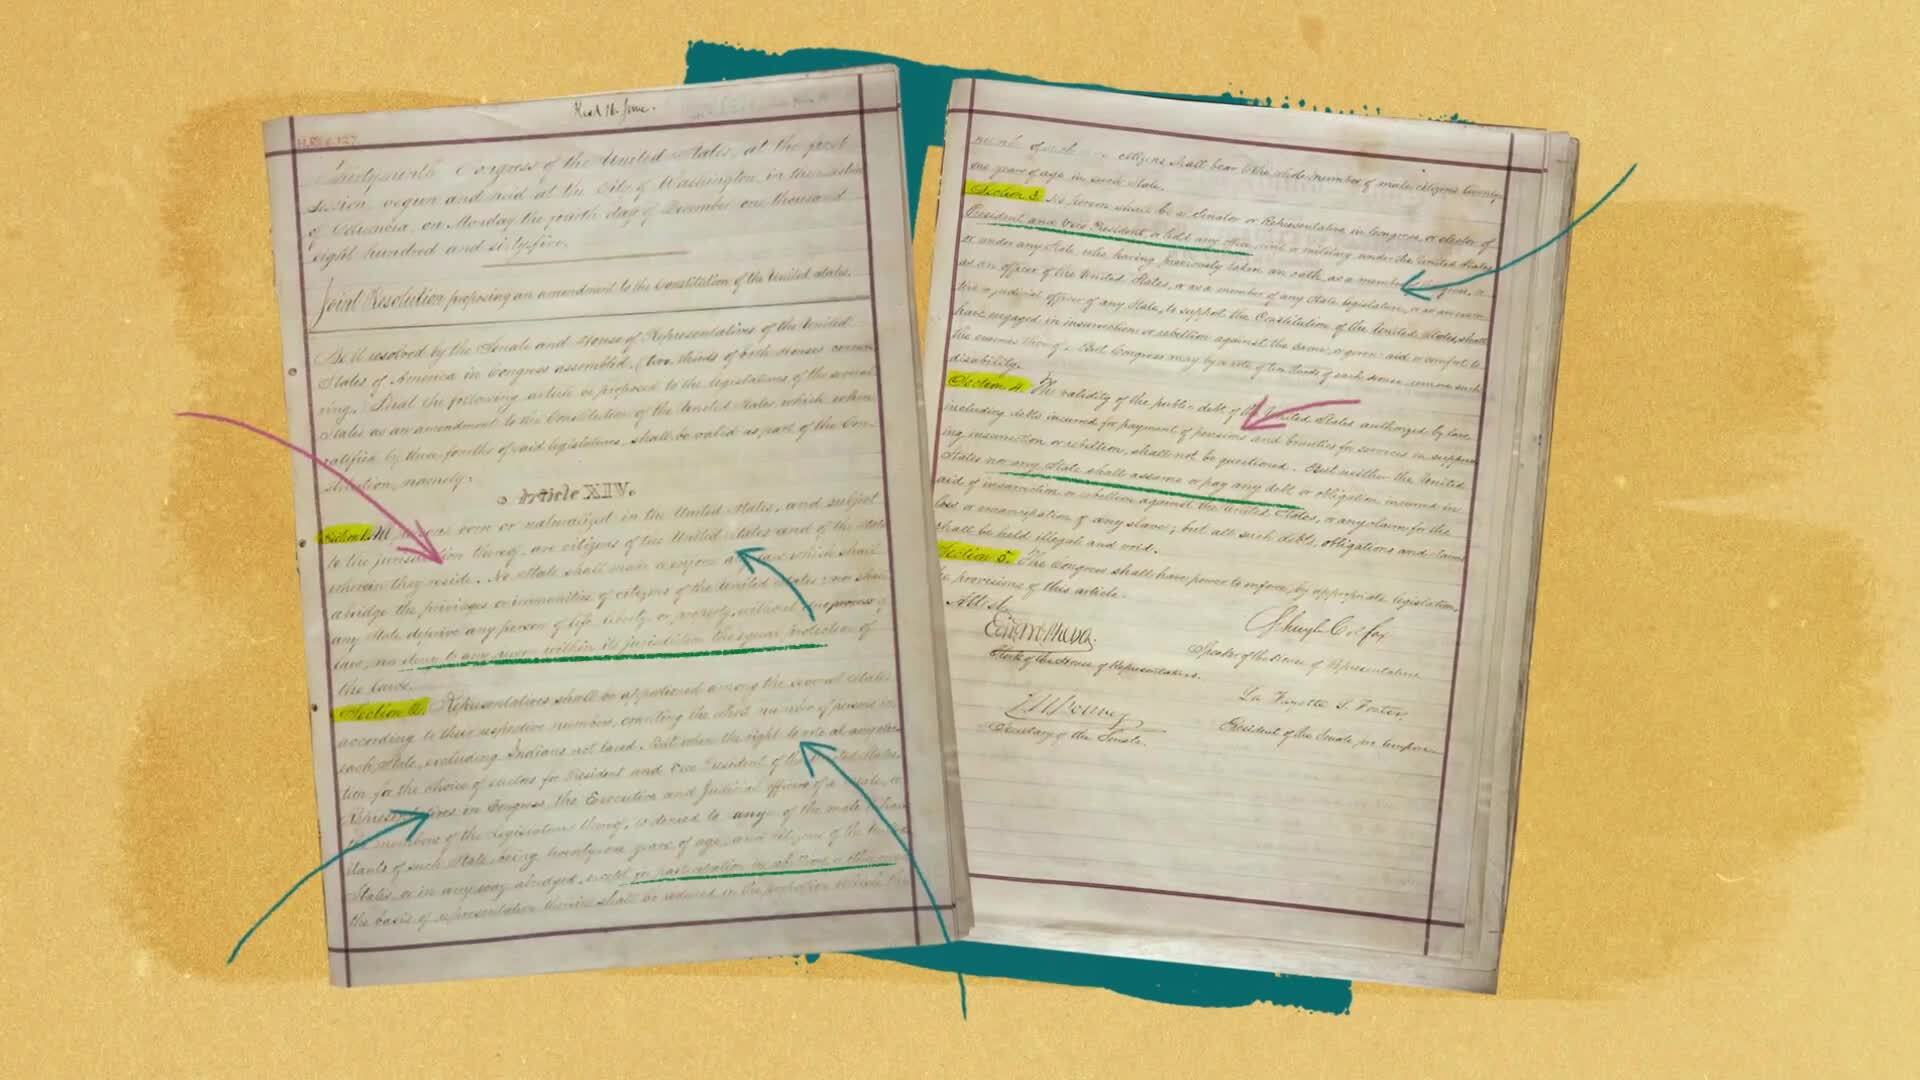 Thirty-ninth Congress of the United States, at the first
session, begun and held at the City of Washington, in the District
of Columbia, on Monday the fourth day of December one thousand
eight hundred and sixty-five.
Joint Resolution proposing an amendment to the Constitution of the United States.
Be it resolved by the Senate and House of Representatives of the United
States of America in Congress assembled, (two thirds of both Houses concur-
ring,) That the following article be proposed to the legislatures of the several
States as an amendment to the Constitution of the United States, which, when
ratified by three fourths of said legislatures, shall be valid as part of the Con-
stitution, namely:
Article XIV.
Section 1. All persons born or naturalized in the United States, and subject
to the jurisdiction thereof, are citizens of the United States and of the State
wherein they reside. No State shall make or enforce any law which shall
abridge the privileges or immunities of citizens of the United States; nor shall
any State deprive any person of life, liberty, or property, without due process of
law, nor deny to any person within its jurisdiction the equal protection of
the laws.
Section 2. Representatives shall be apportioned among the several States
according to their respective numbers, counting the whole number of persons in
each State, excluding Indians not taxed. But when the right to vote at any elec-
tion for the choice of electors for President and Vice President of the United States,
Representatives in Congress, the Executive and Judicial officers of a State, or
the members of the Legislature thereof, is denied to any of the male inhabi-
tants of such State, being twenty-one years of age, and citizens of the United
States, or in any way abridged, except for participation in rebellion or other
the basis of representation therein shall be reduced in the proportion which the
number of such male citizens shall bear to the whole number of male citizens twenty-
one years of age in such State.
Section 3. No person shall be a Senator or Representative in Congress, or elector of
President and Vice President, or hold any office, civil or military, under the United States,
or under any State, who, having previously taken an oath, as a member of Congress, or
as an officer of the United States, or as a member of any State legislature, or as an execu-
tive or judicial officer of any State, to support the Constitution of the United States, shall
have engaged in insurrection or rebellion against the same, or given aid or comfort to
the enemies thereof. But Congress may by a vote of two thirds of each House, remove such
disability.
Section 4. The validity of the public debt of the United States, authorized by law,
including debts incurred for payment of pensions and bounties for services in suppress-
ing insurrection or rebellion, shall not be questioned. But neither the United
States nor any State shall assume or pay any debt or obligation incurred in
aid of insurrection or rebellion against the United States, or any claim for the
loss or emancipation of any slave; but all such debts, obligations and claims
shall be held illegal and void.
Section 5. The Congress shall have power to enforce, by appropriate legislation,
the provisions of this article.
Attest.
Schuyler Colfax
Speaker of the House of Representatives.
Clerk of the House of Representatives.
La Fayette S. Foster
President of the Senate pro tempore.
Secretary of the Senate.